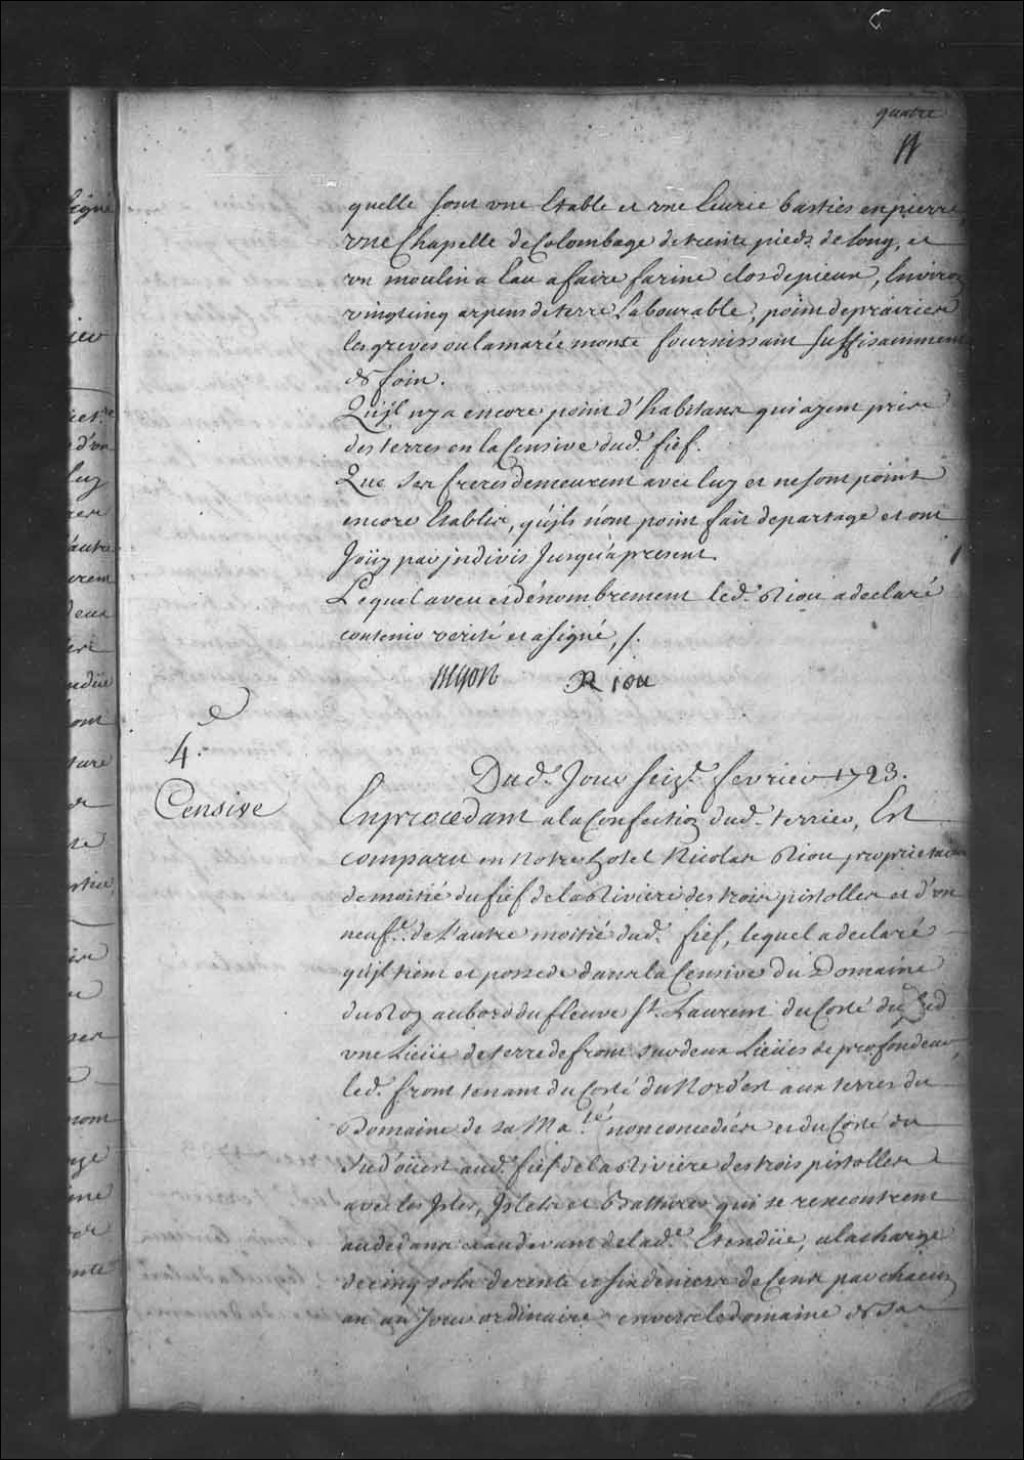 quatre
quelle sont une Etable et une Ecurie basties en pierre
une Chapelle de Colombage de trente pieds de long, et
un moulin a Eau a faire farine clos de pieux, Environ
vingt cinq arpens de terre Labourable, point de prairies
les greves ou la marée monte fournissant suffisamment
de foin.
Qu'jl ny a encore point d'habitans qui ayent pris
des terres en la Censive dud. fief.
Que ses freres demeurent avec luy et ne sont point
encore Etablis, qu'jls n'ont point fait de partage et ont
Joüy par jndivis Jusqu'a present.
Lequel aveu et dénombrement led. Riou a declaré
contenir verité et a signé, /.
Riou
4.e
Censive
Dud. Jour seize. fevrier 1723.
En procedant a la Confection dud. terrier, Est
comparu en Notre hotel Nicolas Riou proprietaire
de moitié du fief de la Riviere des trois pistolles et d'un
neuf.e de l'autre moitié dud. fief, lequel a declaré
qu'jl tient et possede dans la Censive du Domaine
du Roy au bord du fleuve St. Laurent du Costé du Sud
une Lieüe de terre de front sur deux Lieües de profondeur,
led. front tenant du Costé du Nord'est aux terres du
Domaine de sa Ma.té non concedées et du Costé du
Sud'oüest aud. fief de la Riviere des trois pistolles
avec les Jsles, Jslets et Battures qui se rencontrent
au dedans et au devant de lad.e Etendüe, a la charge
de cinq sols de rente et six deniers de Cens par chacun
an au Jour ordinaire envers le domaine de Sa